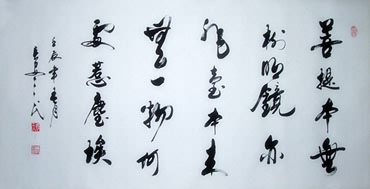 菩提本無
樹明鏡亦
非臺本来
無一物何
處惹塵埃
壬辰年月